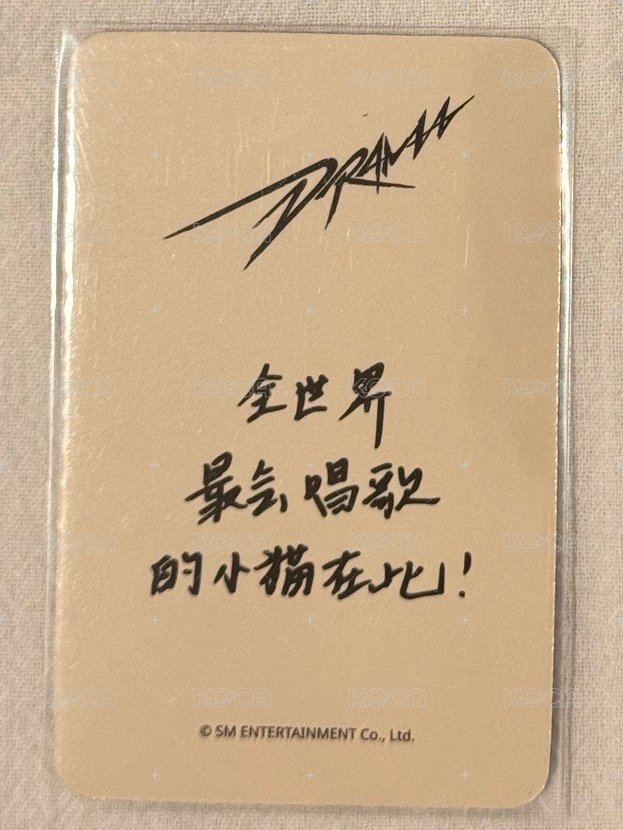 DRAMA
全世界
最会唱歌
的小猫在此！
© SM ENTERTAINMENT Co., Ltd.